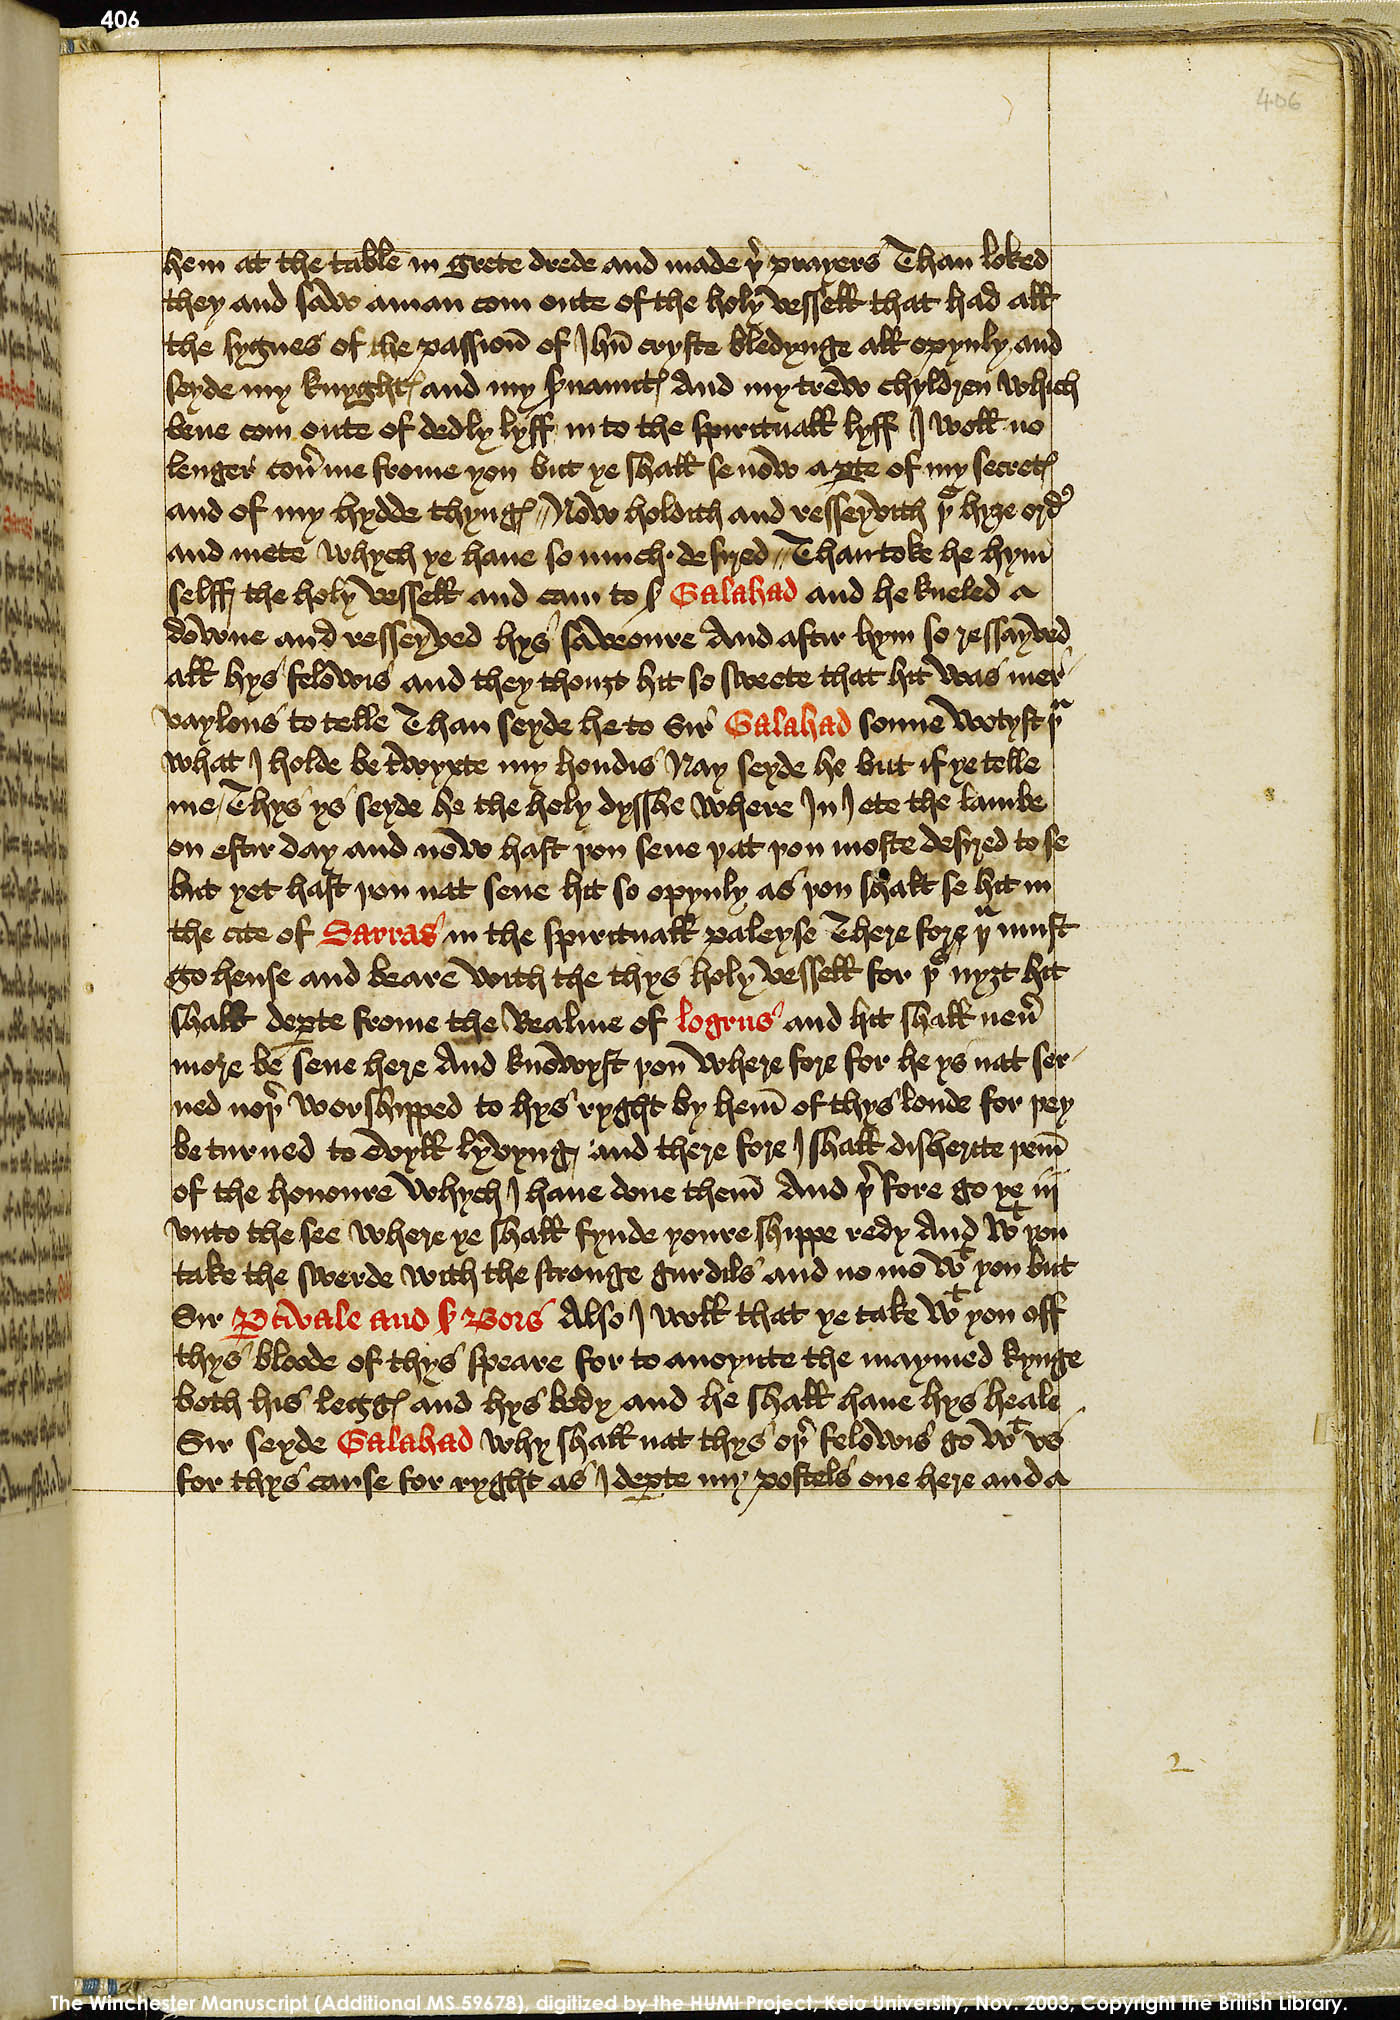 406
406
hem at the table in grete drede and made þr prayers Than loked
they and saw aman com oute of the holy vessell that had all
the sygnes of the passion̄ of Jhū cryste bledynge all opynly and
seyde my knyghtꝭ and my ẜuauntꝭ And my trew chyldren which
bene com oute of dedly lyff in to the spirituall lyff I woll no
lenger cou̾ me frome you but ye shall se now a ꝑte of my secretꝭ
and of my hydde thyngꝭ // Now holdith and resseyvith þe hyȝe ordr
and mete whych ye haue so much desyred // Than toke he hym
selff the holy vessell and cam to ẜ Galahad and he kneled a
downe and resseyved hys saveoure And aftir hym so ressayved
all hys felowis and they thouȝt hit so sweete that hit was mer
vaylous to telle Than seyde he to Sir Galahad sonne wotyst þu
what I holde be twyxte my hondis Nay seyde he but if ye telle
me / Thys ys seyde he the holy dysshe where In I ete the lambe
on estir day and now hast þou sene þat þou moste desyred to se
but yet hast þou nat sene hit so opynly as þou shalt se hit in
the cite of Sarras in the spirituall paleyse There fore þu must
go hense and beare with the thys holy vessell for þs nyȝt hit
shall deꝑte frome the Realme of logrus and hit shall neu̾
more be sene here And knowyst þou where fore for he ys nat ser
ued noþr worshipped to hys ryght by hem̄ of thys londe for þey
be turned to evyll lyvyng and there fore I shall disherite þem̄
of the honoure whych I haue done them̄ And þr fore go ye iij
vnto the see where ye shall fynde youre shippe redy And wt you
take the swerde with the stronge gurdils and no mo wt you but
Sir Ꝑcivale and ẜ Bors Also I woll that ye take wt you off
thys bloode of thys speare for to anoynte the maymed kynge
both his leggꝭ and hys body and he shall haue hys heale
Sir seyde Galahad why shall nat thys oþr felowis go wt vs
for thys cause for ryght as I deꝑte my postels one here and a
2
The Winchester Manuscript (Additional MS 59678), digitized by the HUMI Project, Keio University, Nov. 2003; Copyright The British Library.